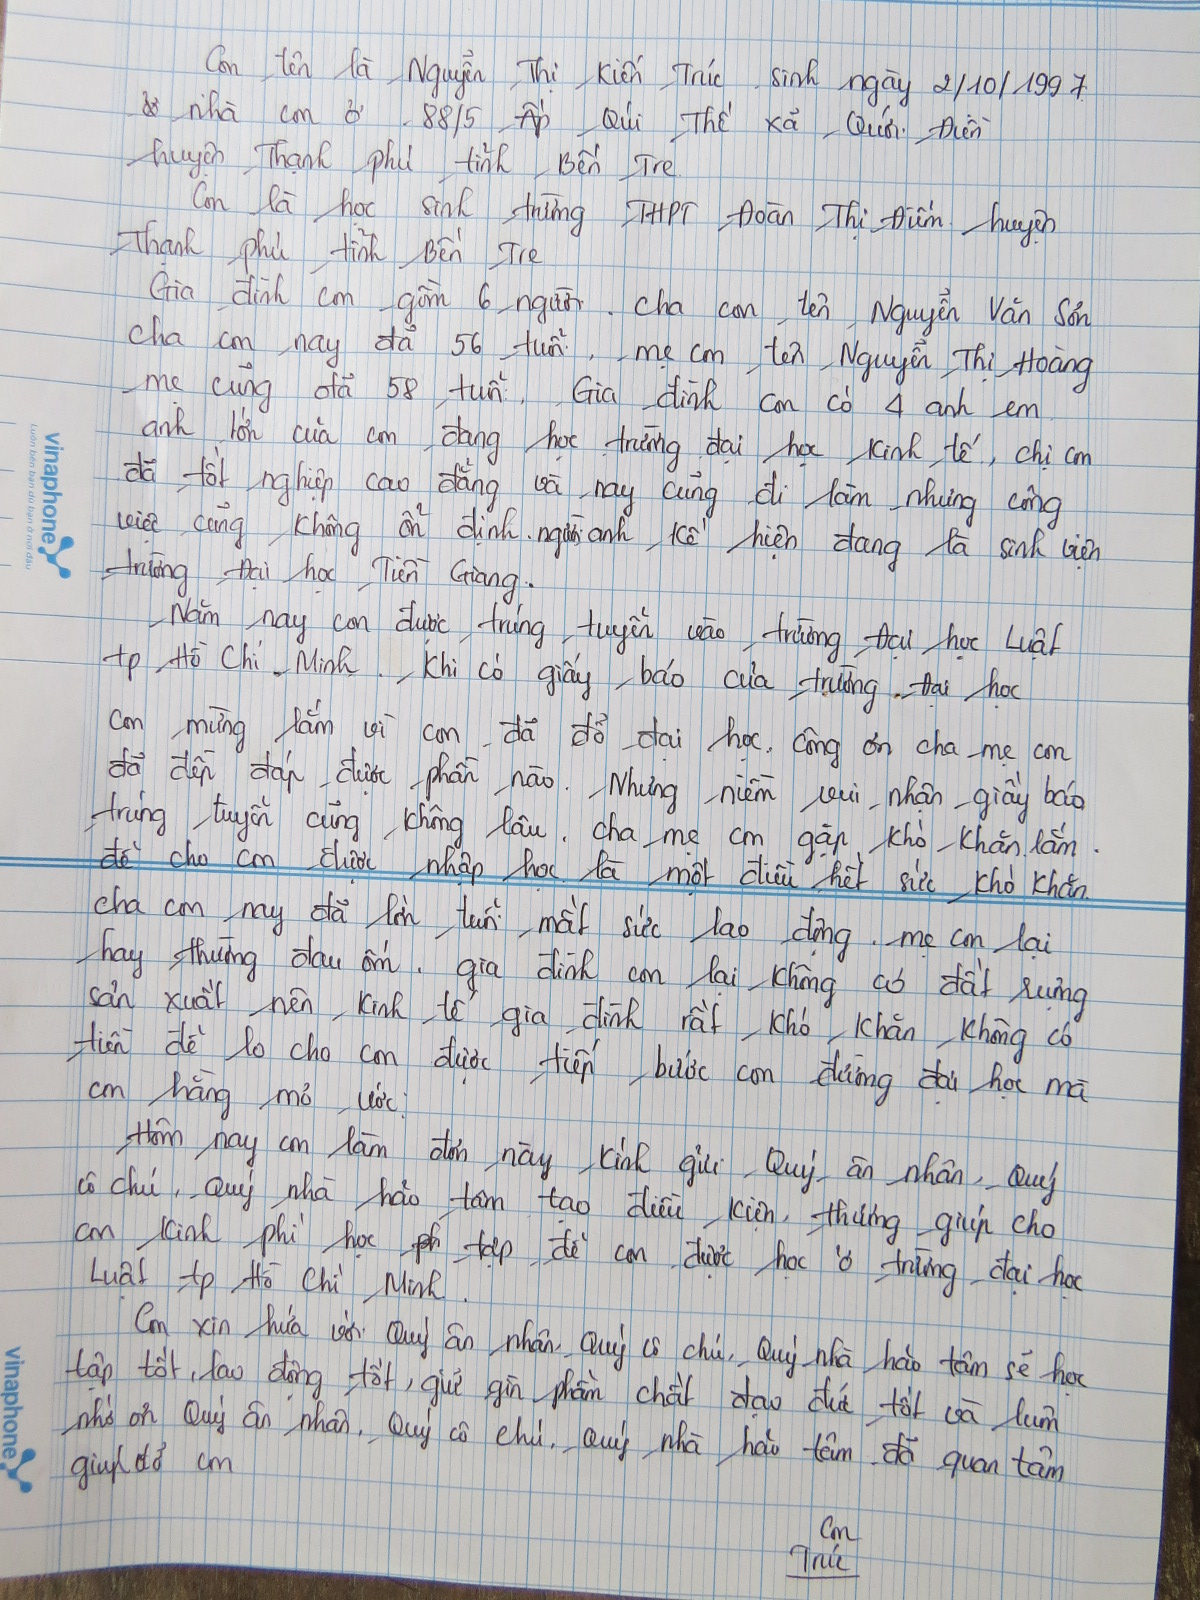 Con tên là Nguyễn Thị Kiến Trúc sinh ngày 2/10/1997
nhà con ở 88/5 Ấp Qúi Thế xã Qưới Điền
huyện Thạnh phú tỉnh Bến Tre
Con là học sinh trường THPT Đoàn Thị Điểm huyện
Thạnh phú tỉnh Bến Tre
Gia đình con gồm 6 người. cha con tên Nguyễn Văn Sơn
cha con nay đã 56 tuổi, mẹ con tên Nguyễn Thị Hoàng
mẹ củng đã 58 tuổi. Gia đình con có 4 anh em
anh lớn của con đang học trường đại học Kinh tế, chị con
đã tốt nghiệp cao đẳng và nay củng đi làm nhưng công
việc củng không ổn định. người anh kế hiện đang là sinh viện
trường Đại học Tiền Giang.
Năm nay con được trúng tuyển vào trường Đại học Luật
tp Hồ Chí Minh. Khi có giấy báo của trường Đại học
con mừng lắm vì con đã đổ đại học. công ơn cha mẹ con
đã đền đáp được phần nào. Nhưng niềm vui nhận giấy báo
trúng tuyển củng không lâu. cha mẹ con gặp khó khăn lắm.
để cho con được nhập học là một điều hết sức khó khăn.
cha con nay đã lớn tuổi mất sức lao động. mẹ con lại
hay thường đau ốm. gia đình con lại không có đất rưng
sản xuất nên kinh tế gia đình rất khó khăn không có
tiền để lo cho con được tiếp bước con đường đại học mà
con hằng mở ước.
Hôm nay con làm đơn này kính gửi Quý ân nhân, Quý
cô chú, Quý nhà hảo tâm tạo điều kiện, thương giúp cho
con kinh phí học tập để con được học ở trường đại học
Luật tp Hồ Chí Minh.
Con xin hứa với Quý ân nhân, Quý cô chú, Quý nhà hảo tâm sẽ học
tập tốt, lao động tốt, giữ gìn phẩm chất đạo đức tốt và luôn
nhớ ơn Quý ân nhân, Quý cô chú, Quý nhà hảo tâm đã quan tâm
giúp đở con
Con
Trúc
vinaphone
Luôn bên bạn dù bạn ở nơi đâu
vinaphone